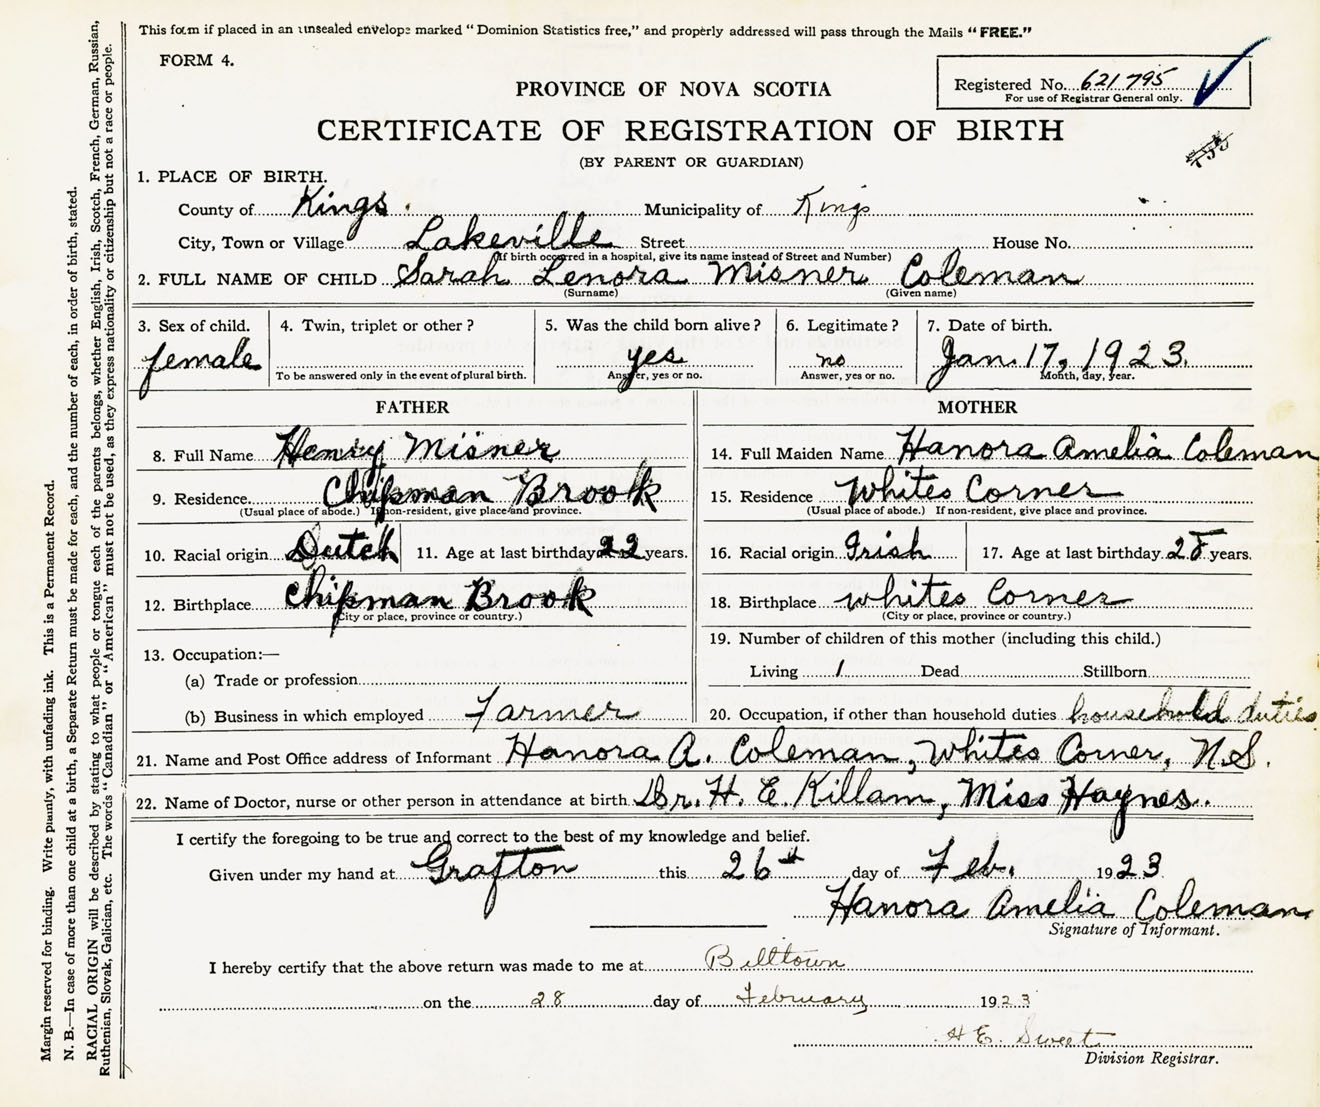 This form if placed in an unsealed envelope marked "Dominion Statistics free," and properly addressed will pass through the Mails "FREE."
FORM 4.
Registered No. 621795
For use of Registrar General only.
PROVINCE OF NOVA SCOTIA
CERTIFICATE OF REGISTRATION OF BIRTH
(BY PARENT OR GUARDIAN)
1. PLACE OF BIRTH.
County of Kings Municipality of Kings
City, Town or Village Lakeville Street House No.
(If birth occurred in a hospital, give its name instead of Street and Number)
2. FULL NAME OF CHILD Sarah Lenora Misner Coleman
(Surname) (Given name)
3. Sex of child. 4. Twin, triplet or other? 5. Was the child born alive? 6. Legitimate? 7. Date of birth.
female yes no Jan. 17, 1923.
To be answered only in the event of plural birth. Answer, yes or no. Answer, yes or no. Month, day, year.
FATHER
8. Full Name Henry Misner
9. Residence Chipman Brook
(Usual place of abode.) If non-resident, give place and province.
10. Racial origin Dutch 11. Age at last birthday 22 years.
12. Birthplace Chipman Brook
(City or place, province or country.)
13. Occupation:—
(a) Trade or profession
(b) Business in which employed Farmer
MOTHER
14. Full Maiden Name Hanora Amelia Coleman
15. Residence Whites Corner
(Usual place of abode.) If non-resident, give place and province.
16. Racial origin Irish 17. Age at last birthday years.
18. Birthplace whites Corner
(City or place, province or country.)
19. Number of children of this mother (including this child.)
Living 1 Dead Stillborn
20. Occupation, if other than household duties household duties
21. Name and Post Office address of Informant Hanora A. Coleman, Whites Corner, N.S.
22. Name of Doctor, nurse or other person in attendance at birth Dr. H. E. Killam, Miss Haynes.
I certify the foregoing to be true and correct to the best of my knowledge and belief.
Given under my hand at Grafton this 26th day of Feb. 1923
Hanora Amelia Coleman
Signature of Informant.
I hereby certify that the above return was made to me at Billtown
on the 28 day of February 1923
H E. Sweet
Division Registrar.
Margin reserved for binding. Write plainly, with unfading ink. This is a Permanent Record.
N. B.—In case of more than one child at a birth, a Separate Return must be made for each, and the number of each, in order of birth, stated.
RACIAL ORIGIN will be described by stating to what people or tongue each of the parents belongs, whether English, Irish, Scotch, French, German, Russian,
Ruthenian, Slovak, Galician, etc. The words "Canadian" or "American" must not be used, as they express nationality or citizenship but not a race or people.